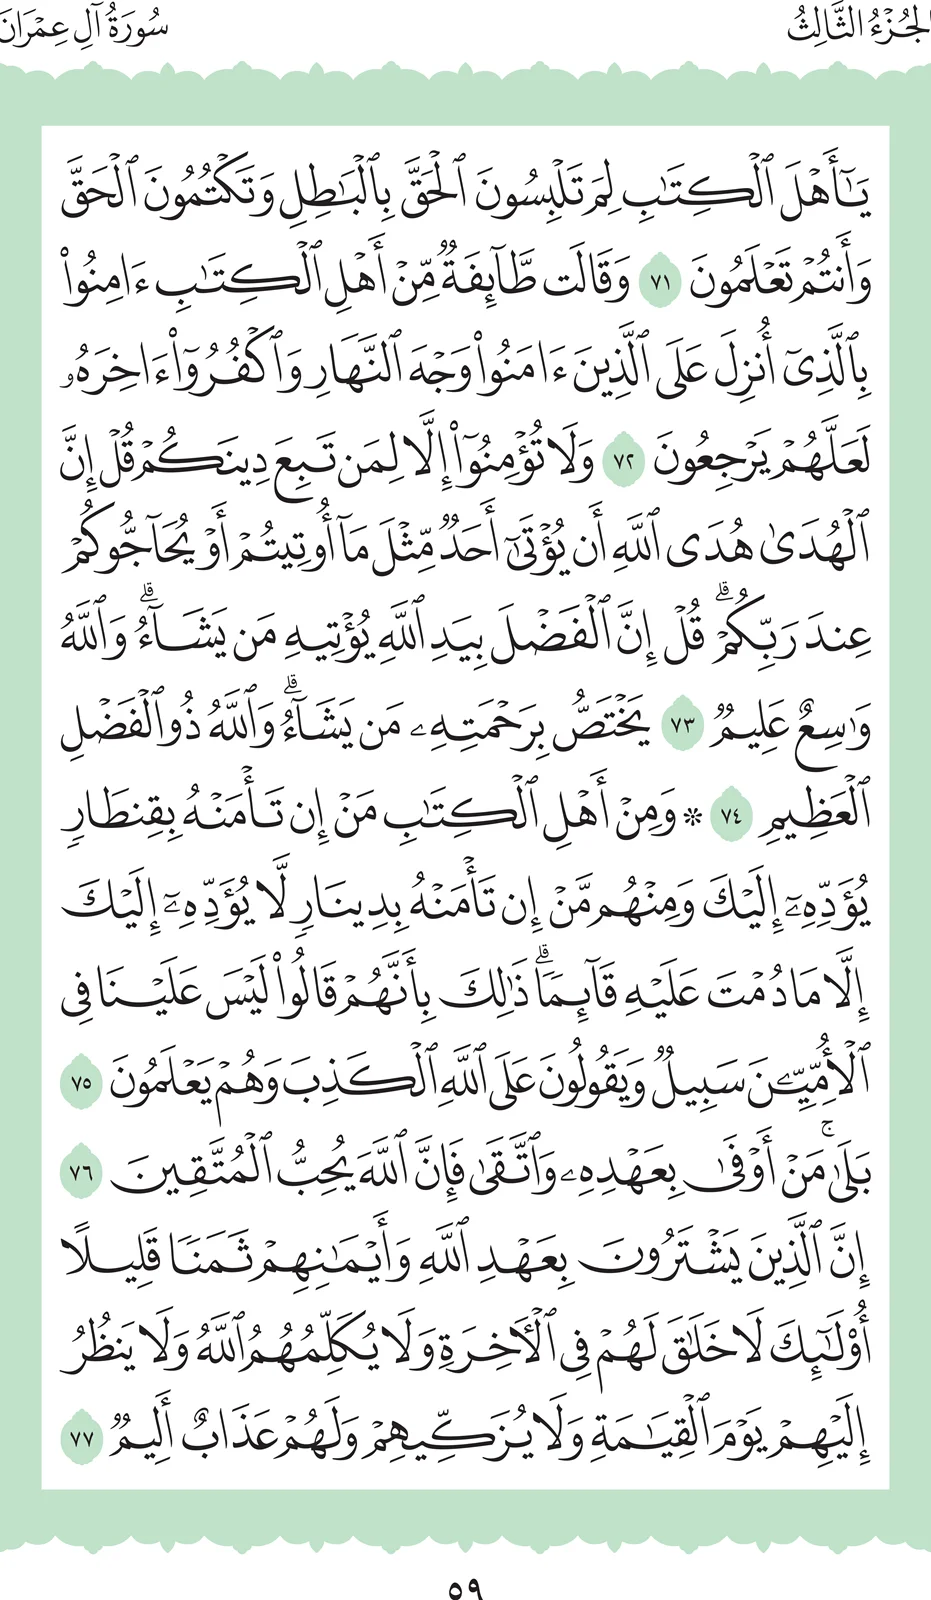 الجُزْءُ الثَّالِثُ
سُورَةُ آلِ عِمْرَانَ
يَٰٓأَهْلَ ٱلْكِتَٰبِ لِمَ تَلْبِسُونَ ٱلْحَقَّ بِٱلْبَٰطِلِ وَتَكْتُمُونَ ٱلْحَقَّ
وَأَنتُمْ تَعْلَمُونَ ٧١ وَقَالَت طَّآئِفَةٌ مِّنْ أَهْلِ ٱلْكِتَٰبِ ءَامِنُوا۟
بِٱلَّذِىٓ أُنزِلَ عَلَى ٱلَّذِينَ ءَامَنُوا۟ وَجْهَ ٱلنَّهَارِ وَٱكْفُرُوٓا۟ ءَاخِرَهُۥ
لَعَلَّهُمْ يَرْجِعُونَ ٧٢ وَلَا تُؤْمِنُوٓا۟ إِلَّا لِمَن تَبِعَ دِينَكُمْ قُلْ إِنَّ
ٱلْهُدَىٰ هُدَى ٱللَّهِ أَن يُؤْتَىٰٓ أَحَدٌ مِّثْلَ مَآ أُوتِيتُمْ أَوْ يُحَآجُّوكُمْ
عِندَ رَبِّكُمْ ۗ قُلْ إِنَّ ٱلْفَضْلَ بِيَدِ ٱللَّهِ يُؤْتِيهِ مَن يَشَآءُ ۗ وَٱللَّهُ
وَٰسِعٌ عَلِيمٌ ٧٣ يَخْتَصُّ بِرَحْمَتِهِۦ مَن يَشَآءُ ۗ وَٱللَّهُ ذُو ٱلْفَضْلِ
ٱلْعَظِيمِ ٧٤ * وَمِنْ أَهْلِ ٱلْكِتَٰبِ مَنْ إِن تَأْمَنْهُ بِقِنطَارٍ
يُؤَدِّهِۦٓ إِلَيْكَ وَمِنْهُم مَّنْ إِن تَأْمَنْهُ بِدِينَارٍ لَّا يُؤَدِّهِۦٓ إِلَيْكَ
إِلَّا مَا دُمْتَ عَلَيْهِ قَآئِمًا ۗ ذَٰلِكَ بِأَنَّهُمْ قَالُوا۟ لَيْسَ عَلَيْنَا فِى
ٱلْأُمِّيِّۦنَ سَبِيلٌ وَيَقُولُونَ عَلَى ٱللَّهِ ٱلْكَذِبَ وَهُمْ يَعْلَمُونَ ٧٥
بَلَىٰ ۚ مَنْ أَوْفَىٰ بِعَهْدِهِۦ وَٱتَّقَىٰ فَإِنَّ ٱللَّهَ يُحِبُّ ٱلْمُتَّقِينَ ٧٦
إِنَّ ٱلَّذِينَ يَشْتَرُونَ بِعَهْدِ ٱللَّهِ وَأَيْمَٰنِهِمْ ثَمَنًا قَلِيلًا
أُو۟لَٰٓئِكَ لَا خَلَٰقَ لَهُمْ فِى ٱلْءَاخِرَةِ وَلَا يُكَلِّمُهُمُ ٱللَّهُ وَلَا يَنظُرُ
إِلَيْهِمْ يَوْمَ ٱلْقِيَٰمَةِ وَلَا يُزَكِّيهِمْ وَلَهُمْ عَذَابٌ أَلِيمٌ ٧٧
٥٩